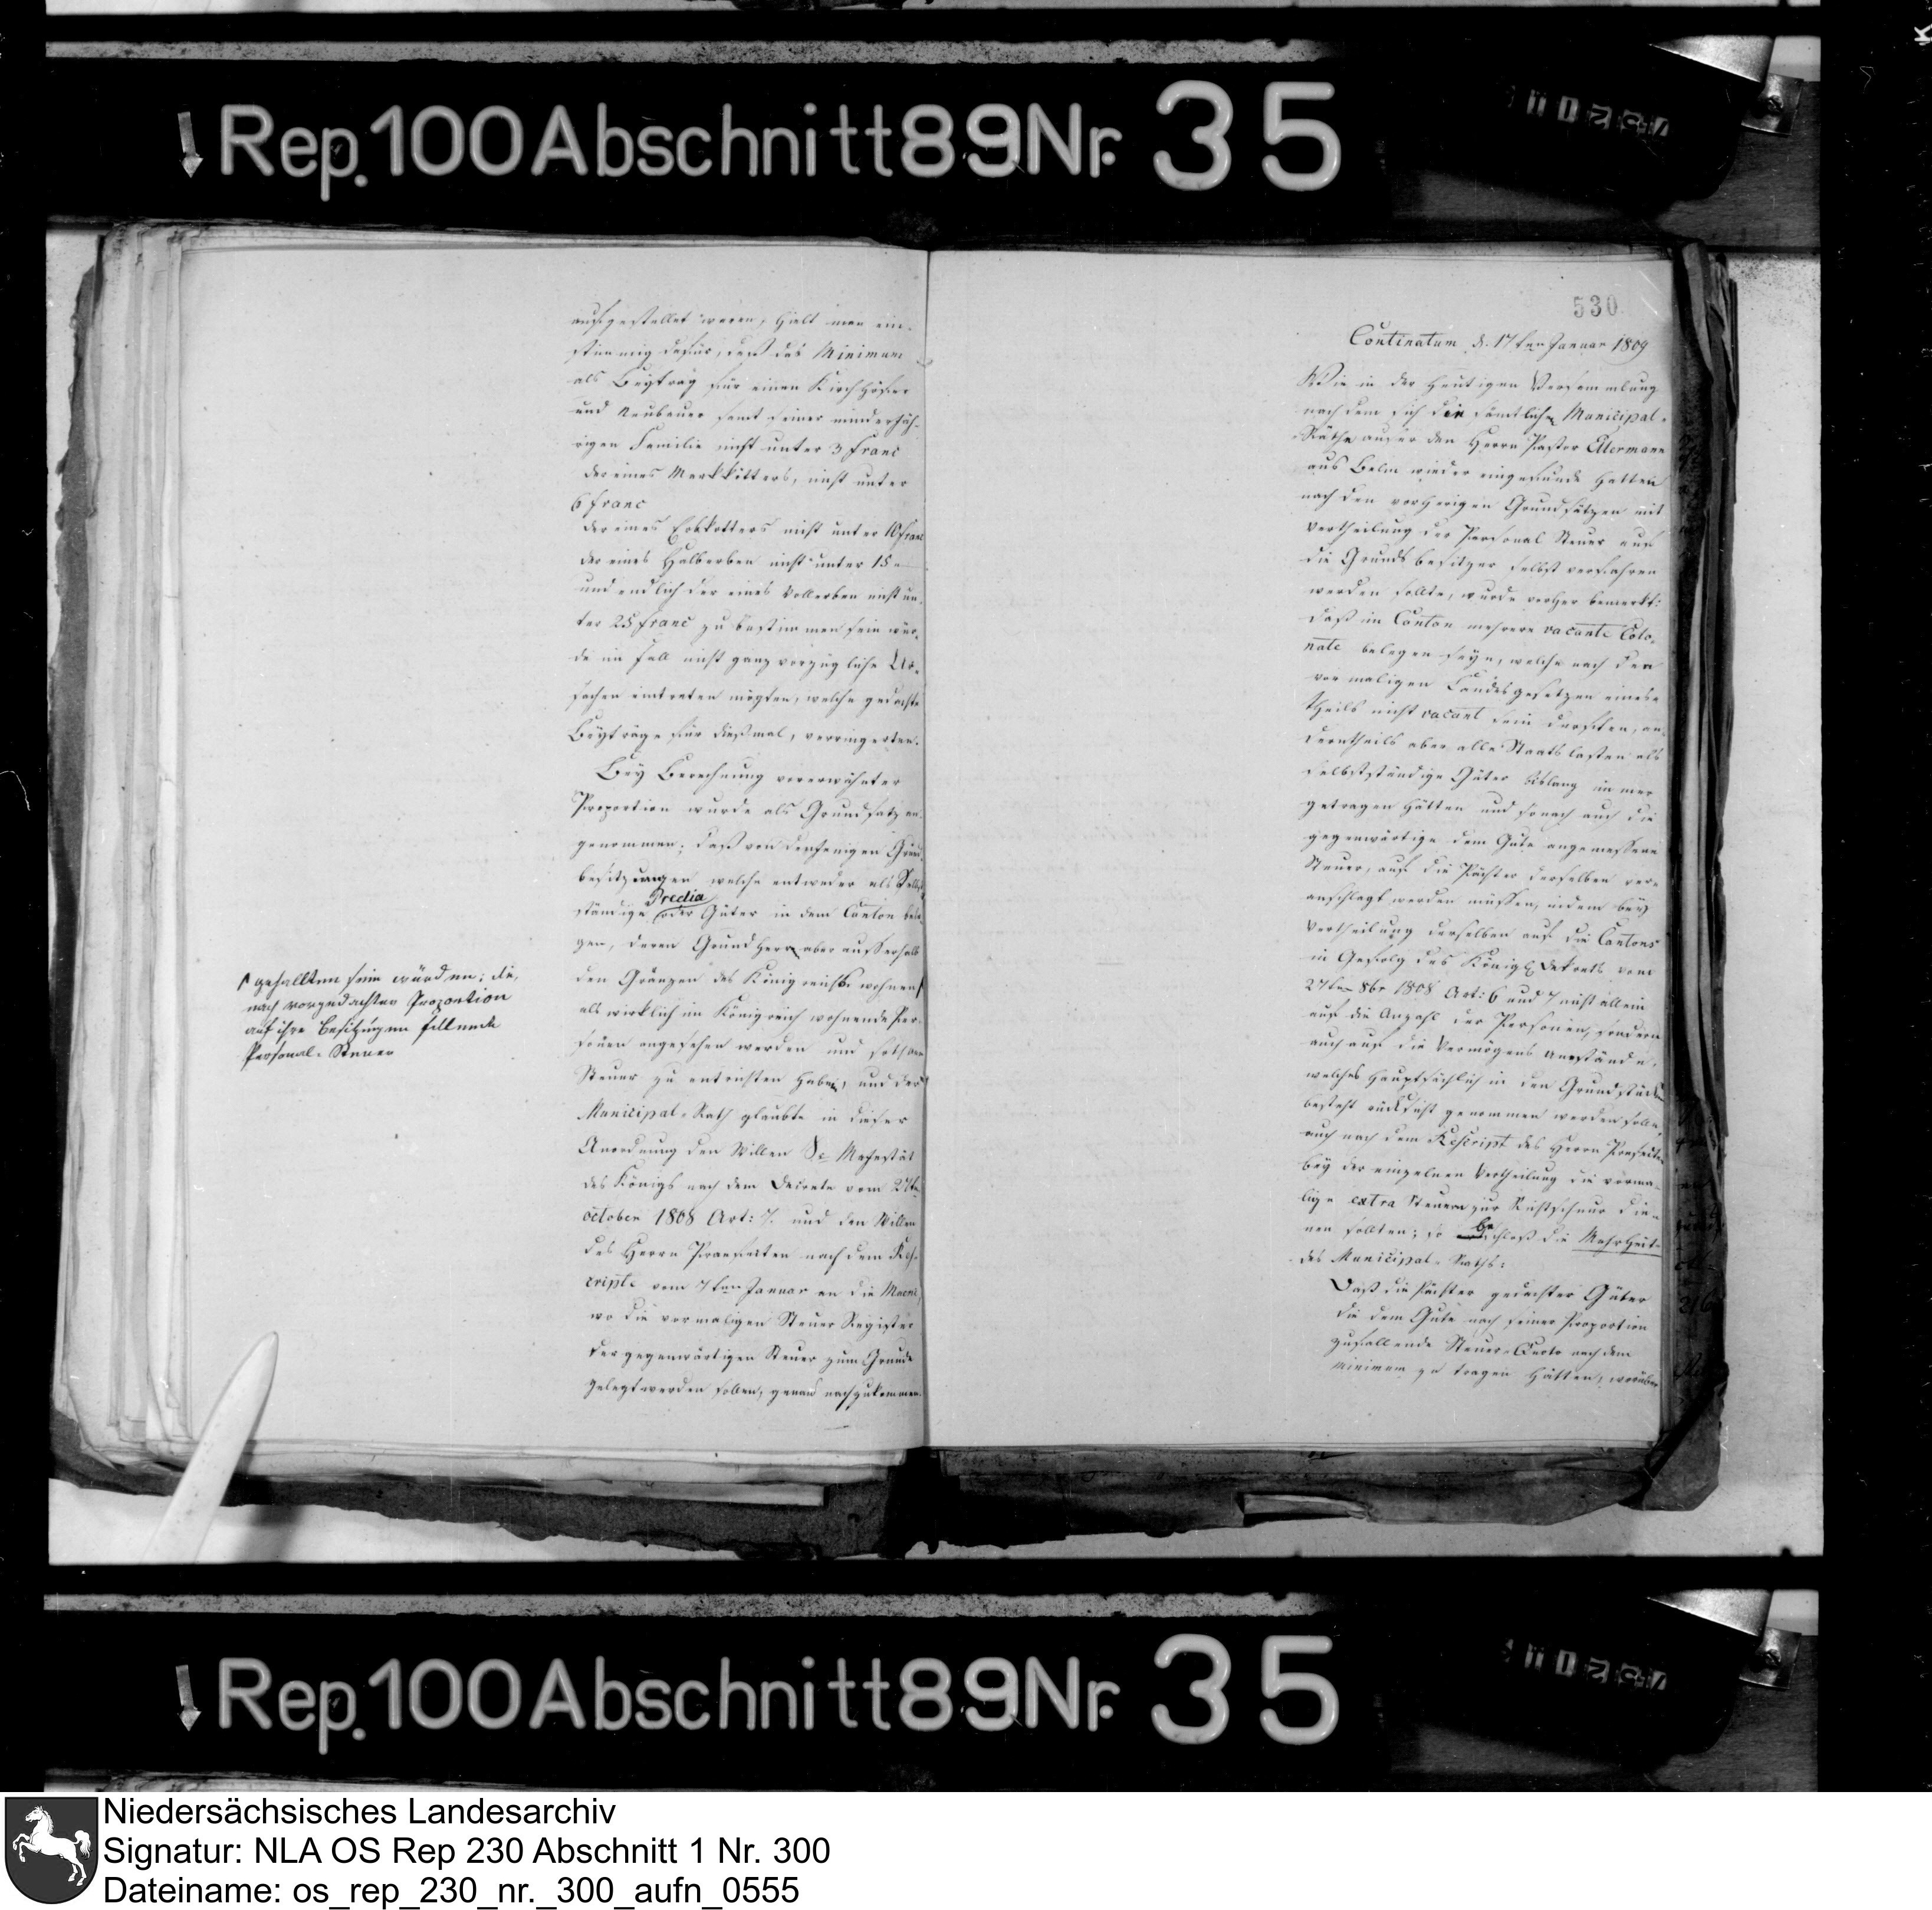 Rep. 100 Abschnitt 89 Nr. 35
aufgestellet waren, hielt man ein-
stimmig dafür, daß das Minimum
als Beytrag für einen Kirchhöfer
und Neubauer samt seiner minderjäh-
rigen Familie nicht unter 3 Franc
der eines Markkötters, nicht unter
6 franc
der eines Erbkotters nicht unter 10 franc
der eines Halberben nicht unter 15 "
und endlich der eines Vollerben nicht un-
ter 25 franc zu bestimmen sein wür-
de im Fall nicht ganz vorzügliche Ur-
sachen eintreten mögten, welche gedachte
Beyträge für dießmal, verringerten.
Bey Berechnung vorerwähnter
Proportion wurde als Grundsatz an-
genommen; daß von denjenigen Grund
besitzungen welche entweder als Selbst
ständige Predia oder Güter in dem Canton bele-
gen, deren Grundherrn aber ausserhalb
den Gränzen des Königreichs wohnen
als wirklich im Königreich wohnende Per-
sonen angesehen werden und
Steuer zu entrichten haben, und der
Municipal-Rath glaubte in dieser
Anordnung den Willen Sr Majestät
des Königs nach dem Decrete vom 27ten
october 1808 Art: 7. und den Willen
des Herrn Praefecten nach dem Res-
cripte vom 7ten Januar an die Maire,
wo die vormaligen Steuer Register
der gegenwärtigen Steuer zum Grunde
gelegt werden sollen, genau nachzukommen.
gehallten sein würden; die,
nach vorgedachter Proportion
auf ihre Besitzungen fallende
Personal-Steuer
530
Continatum d. 17ten Januar 1809
Wie in der heutigen Versammlung
nachdem sich die sämtlichen Municipal-
Räthe außer den Herrn Pastor Ellermann
aus Belm wieder eingefunden hatten
nach den vorherigen Grundsätzen mit
Vertheilung der Personal Steuer auf
die Grundbesitzer selbst verfahren
werden sollte, wurde vorher bemerkt:
daß im Canton mehrere vacante Colo-
nate belegen seyn, welche nach den
vormaligen Landesgesetzen eines-
theils nicht vacant sein durften, an-
derntheils aber alle Staatslasten als
selbstständige Güter bislang immer
getragen hätten und sonach auch die
gegenwärtige dem Gute angemessene
Steuer, auf die Pächter derselben ver-
anschlagt werden müssen, indem bey
Vertheilung derselben auf die Cantons
in Gefolg des Königl. Dekrets vom
27ten 8br 1808 Art: 6 und 7 nicht allein
auf die Anzahl der Personen, sondern
auch auf die Vermögens Umstände,
welches hauptsächlich in den Grundstücken
besteht rücksicht genommen werden solle,
auch nach dem Rescript des Herrn Praefecten
bey der einzelnen Vertheilung die vorma-
lige extra Steuern zur Richtschnur die-
nen sollten; so beschloß die Mehrheit
des Municipal-Raths:
Daß die Pächter gedachter Güter
die dem Gute nach seiner Proportion
zufallende Steuer-Quote nach dem
minimum zu tragen hätten, worüber
Rep. 100 Abschnitt 89 Nr. 35
Niedersächsisches Landesarchiv
Signatur: NLA OS Rep 230 Abschnitt 1 Nr. 300
Dateiname: os_rep_230_nr._300_aufn_0555